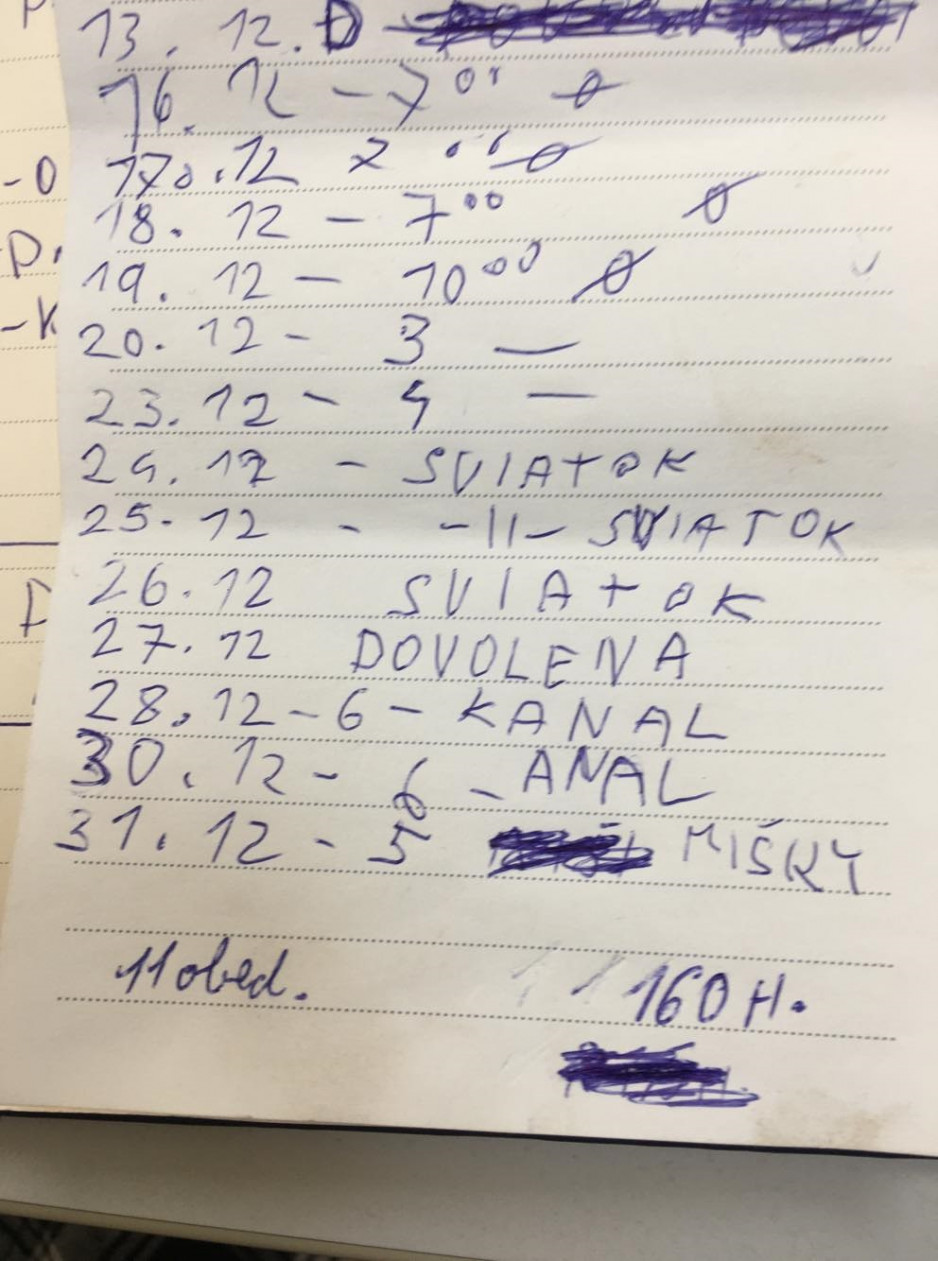 13. 12. D
16. 12 - 7⁰⁰ ∅
17. 12 7 ⁰⁰ ∅
18. 12 - 7⁰⁰ ∅
19. 12 - 10⁰⁰ ∅
20. 12 - 3 —
23. 12 - 4 —
24. 12 - SVIATOK
25. 12 - -11- SVIATOK
26. 12 SVIATOK
27. 12 DOVOLENA
28. 12 - 6 - KANAL
30. 12 - 6 - ANAL
31. 12 - 5 MIŠKY
11 obed. 160 H.
-O
D.
-K